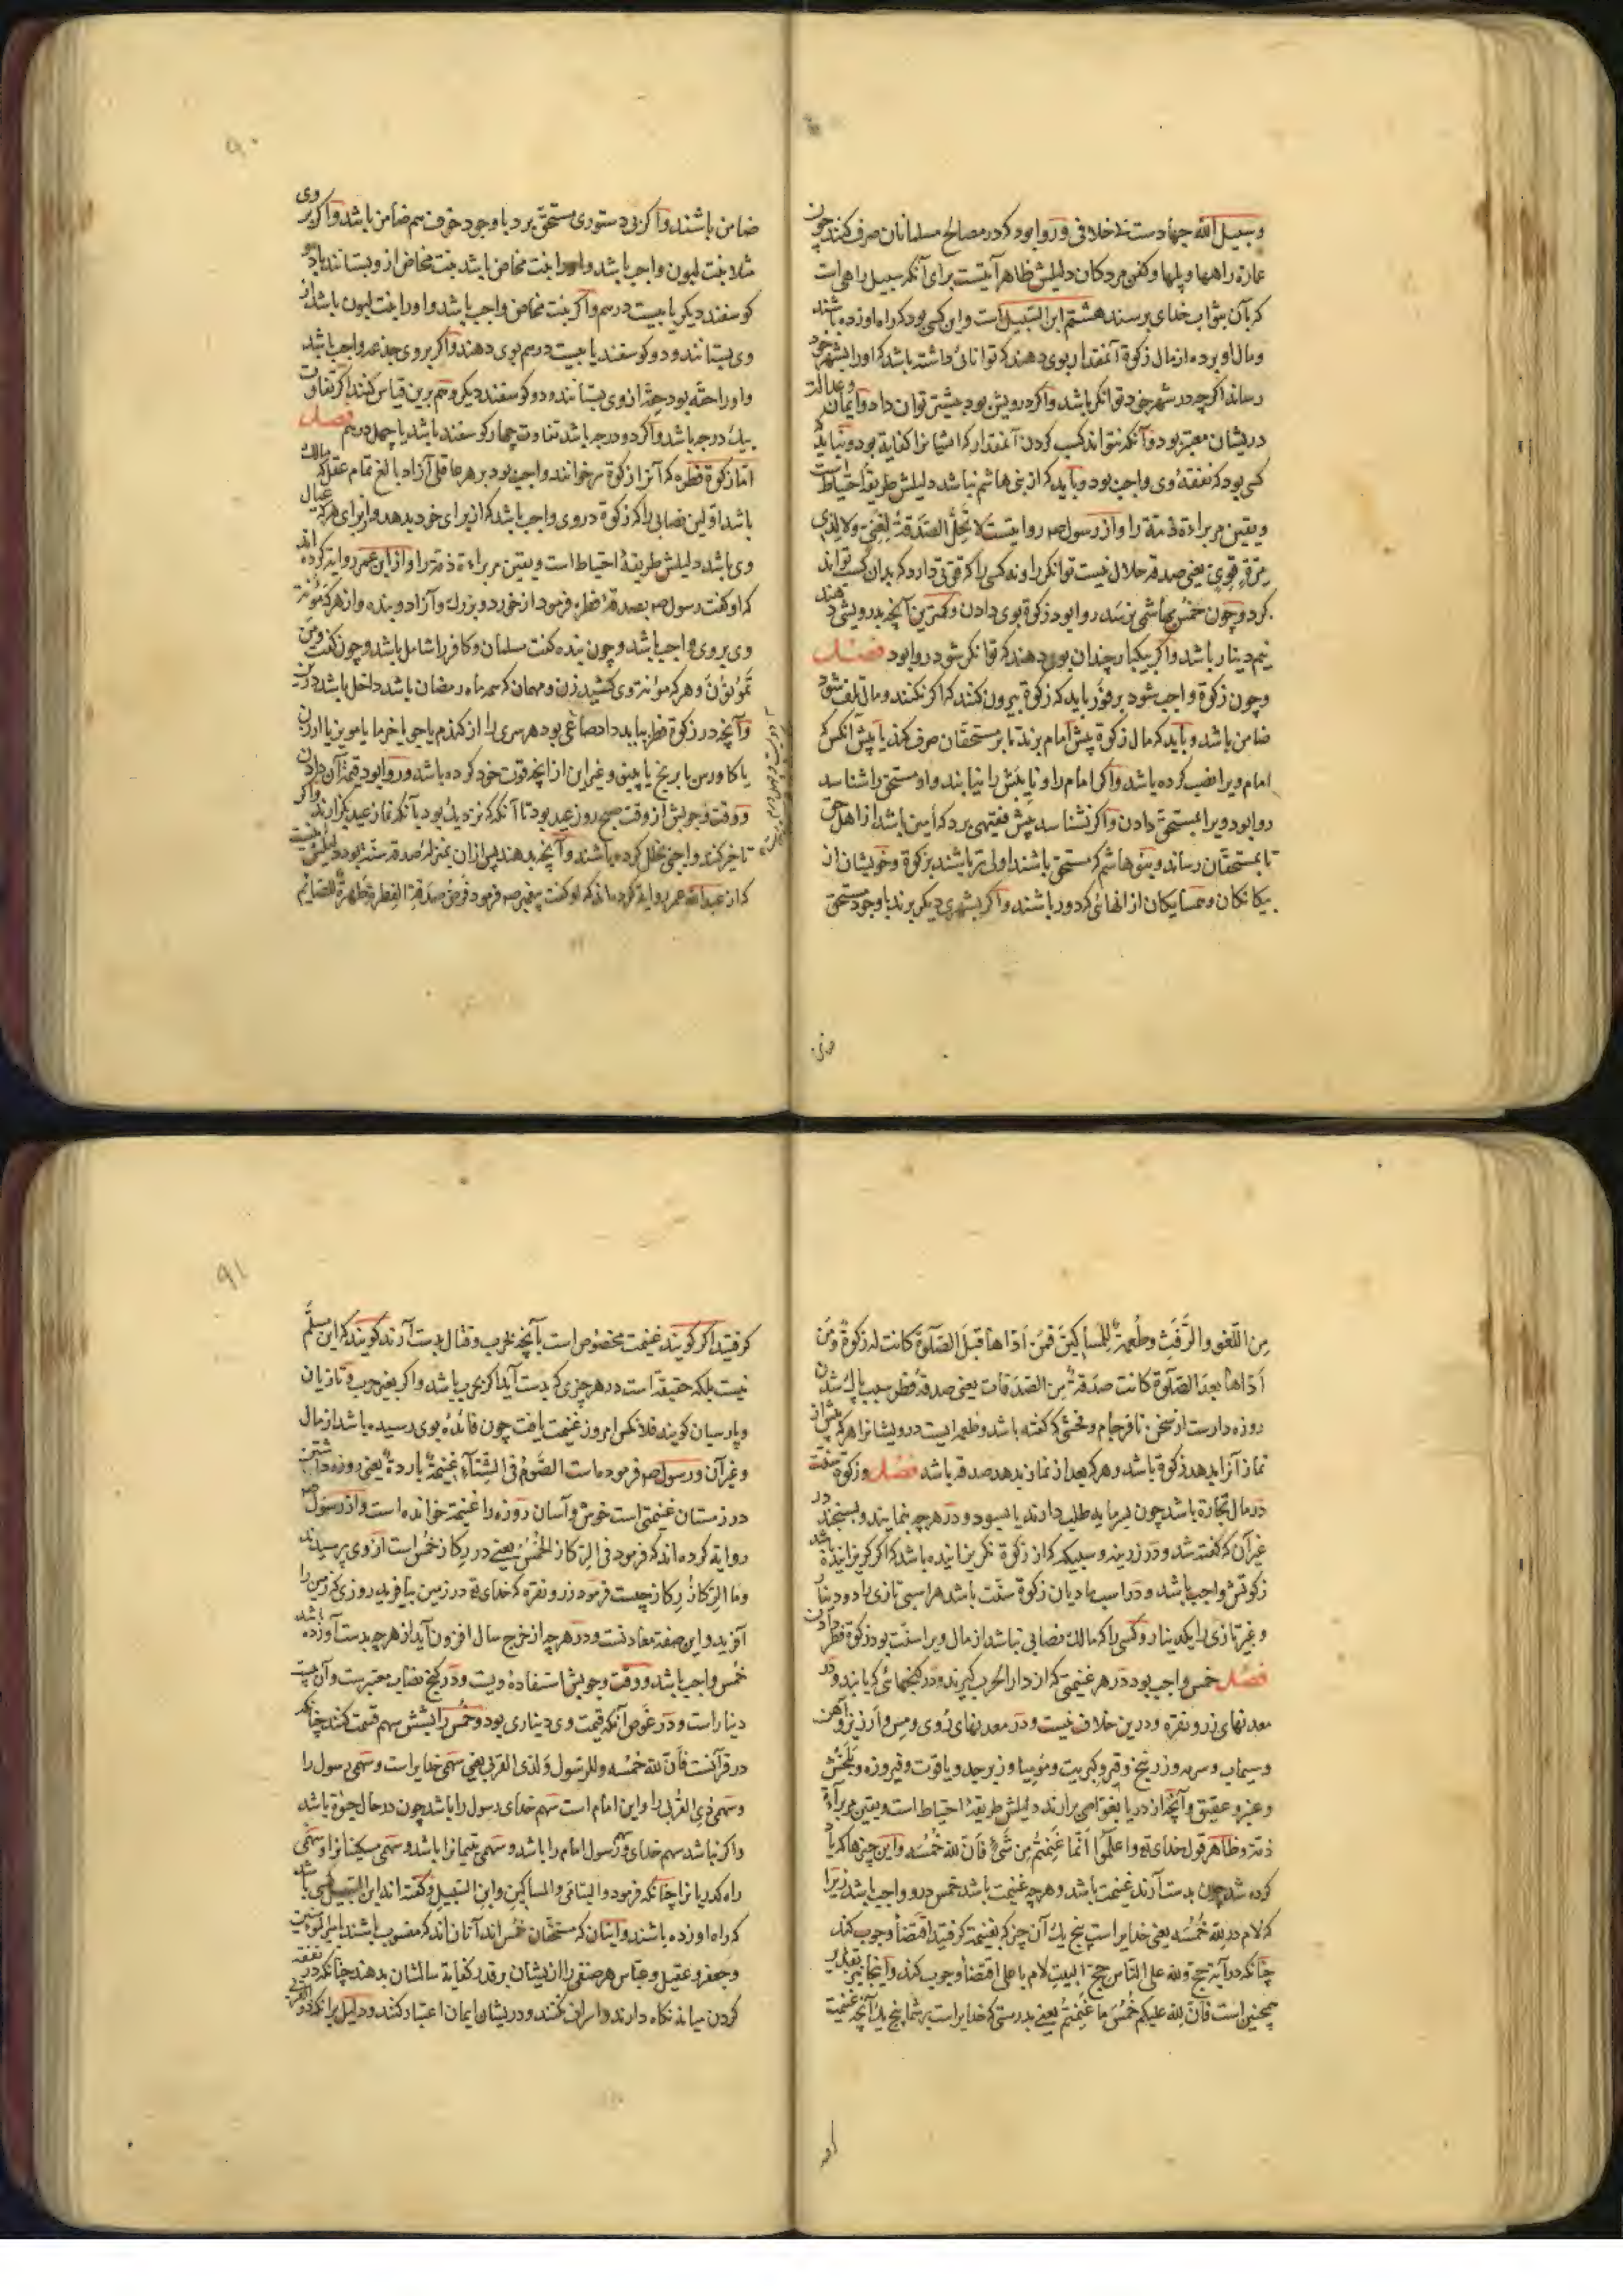 وسبیل الله جهادست بی خلافی و روا بود که در مصالح مسلمانان صرف کنند چون
عمارة راهها و پلها و کفن مردکان دلیلش ظاهر آیتست برای آنکه سبیل راهی است
که بآن بثواب خدای برسند هشتم ابن السبیل است و این کسی بود که راه او زده باشند
و مال او برده از مال زکوة آنمقدار بوی دهند که توانائی داشته باشد که او را بشهر خود
رساند اگرچه در شهر خود توانکر باشد و اگر درویش بود بیشتر توان داد و ایمان و عدالت
دریشان معتبر بود و آنکه نتواند کسب کردن آنمقدار که ایشانرا کفایة بود و نباید که
کسی بود که نفقهٔ وی واجب بود و باید که از بنی هاشم نباشد دلیلش طریقهٔ احتیاط است
و یقین مر براءة ذمة را و از رسول صم روایتست لا تحل الصدقة لغنی ولا لذی
مرة قوی یعنی صدقه حلال نیست توانکر را و نه کسی را که قوتی دارد که بدان کسب تواند
کرد و چون خمس بهاشمی نرسد روا بود زکوة بوی دادن و کمترین آنچه بدرویشی دهند
نیم دینار باشد و اگر بیکبار چندان بوی دهند که توانکر شود روا بود فصل
و چون زکوة واجب شود بر فور باید که زکوة بیرون کنند که اگر نکنند و مال تلف شود
ضامن باشد و باید که مال زکوة پیش امام برند تا بر مستحقان صرف کند یا پیش آنکس که
امام ویرا نصب کرده باشد و اگر امام را و نایبش را نیابند و او مستحق را شناسد
روا بود ویرا بمستحق دادن و اگر نشناسد پیش فقیهی برد که امین باشد از اهل حق
تا بمستحقان رساند و بنو هاشم که مستحق باشند اولی تر باشند بزکوة و خویشان از
بیکانکان و همسایکان از انهائی که دور باشند و اگر بشهری دیکر برند با وجود مستحق
ضامن
۹۰
ضامن باشند و اگر بی دستوری مستحق برد با وجود خوف هم ضامن باشد و اگر بر وی
مثلا بنت لبون واجب باشد و اورا بنت مخاض باشد بنت مخاض از و بستانند با دو
کوسفند دیکر یا بیست درم و اگر بنت مخاض واجب باشد و اورا بنت لبون باشد از
وی بستانند و دو کوسفند یا بیست درم بوی دهند و اگر بر وی جذعه واجب باشد
و اورا حقه بود حقه از وی بستانند و دو کوسفند دیکر و هم برین قیاس کنند اگر تفاوت
بیک درجه باشد و اگر دو درجه باشد تفاوت چهار کوسفند باشد یا چهل درهم فصل
اما زکوة فطره که آنرا زکوة سر خوانند واجب بود بر هر عاقلی آزاد بالغ تمام عقل که مالک
باشد اولین نصابی را که زکوة در وی واجب باشد که از برای خود بدهد و از برای هر که عیال
وی باشد دلیلش طریقهٔ احتیاط است و یقین مر براءة ذمة را و از ابن عمر روایة کرده اند
که او کفت رسول صم بصدقهٔ فطر فرمود از خورد و بزرک و آزاد و بنده و از هر که مؤنة
وی بر وی واجب باشد و چون بنده کفت مسلمان و کافر را شامل باشد و چون کفت ومن
تمونون و هر که مؤنة وی کشید زن و مهمان که سه ماه رمضان باشد داخل باشد درین
و آنچه در زکوة فطر بباید داد صاعی بود هر سری را از کندم یا جو یا خرما یا مویز یا ارزن
یا کاورس یا برنج یا پینو و غیر این از انچه قوت خود کرده باشد و روا بود قیمة آن دادن
و وقت وجوبش از وقت صبح روز عید بود تا آنکه که نزدیک بود بآنکه نماز عید بکزارند و اگر
تاخیر کنند واجبی بخلل کرده باشند و آنچه بدهند پس از ان بمنزلهٔ صدقهٔ سنة بود دلیلش
که از عبدالله عمر روایة کرده اند که او کفت پیغمبر صم فرمود فرض صدقة الفطرة طهرة للصائم
من اللغو والرفث وطعمة للمساکین فمن اداها قبل الصلوة کانت له زکوة ومن
اداها بعد الصلوة کانت صدقة من الصدقات یعنی صدقهٔ فطر سبب پاک شدن
روزه دارست از سخن نافرجام و فحشی که کفته باشد و طعمه ایست درویشانرا هر که پیش از
نماز آنرا بدهد زکوة باشد و هر که بعد از نماز بدهد صدقه باشد فصل و زکوة سنت
در مال تجارة باشد چون بسرمایه طلب دارند یا بسود و در هرچه بپیمایند و بسنجند در
غیر آن که کفته شد و در زرینه و سیمینه که از زکوة نکریزانیده باشد که اگر کریزانیده باشد
زکوتش واجب باشد و در اسب مادیان زکوة سنت باشد هر اسبی تازی را دو دینار
و غیر تازی را یکدینار و کسی را که مالک نصابی نباشد از مال ویرا سنت بود زکوة فطر دادن
فصل خمس واجب بود در هر غنیمتی که از دار الحرب کیرند و در کنجهائی که یابند و در
معدنهای زر و نقره و درین خلاف نیست و در معدنهای روی و مس و ارزیز و آهن
و سیماب و سرمه و زرنیخ و قیر و کبریت و مومیا و زبرجد و یاقوت و فیروزه و بلخش
و عنبر و عقیق و آنچه از دریا بغواصی برارند دلیلش طریقهٔ احتیاط است و یقین مر براءة
ذمة و ظاهر قول خدای تع واعلموا انما غنمتم من شیء فان لله خمسه و این چیزها که یاد
کرده شد چون بدست آرند غنیمت باشد و هرچه غنیمت باشد خمس درو واجب باشد زیرا
که لام در لله خمسه یعنی خدایراست پنج یک آن چیز که بغنیمة کرفتید اقتضاء وجوب کند
چنانکه در آیة حج ولله علی الناس حج البیت لام با علی اقتضاء وجوب کند و آنجا نیز تقدیر
همچنین است فان لله علیکم خمس ما غنمتم یعنی بدرستی که خدایراست بر شما پنج یک آنچه غنیمت
۹۱
کرفتید اگر کویند غنیمت مخصوص است بآنچه بحرب و قتال بدست آرند کویند که این مسلم
نیست بلکه حقیقة است در هر چیزی که بدست آید اگر بحرب باشد و اگر بغیر حرب و تازیان
و پارسیان کویند فلانکس امروز غنیمت یافت چون فائدهٔ بوی رسیده باشد از مال
و غیر آن و رسول صم فرموده است الصوم فی الشتاء غنیمة باردة یعنی روزه داشتن
در زمستان غنیمتی است خوش و آسان روزه را غنیمة خوانده است و از رسول صم
روایة کرده اند که فرمود فی الرکاز الخمس یعنی در رکاز خمس است از وی پرسیدند
وما الرکاز رکاز چیست فرمود زر و نقره که خدای تع در زمین بیافرید روزی که زمین را
آفرید و این صفة معادنست و در هرچه از خرج سال افزون آید از هرچه بدست آورده باشد
خمس واجب باشد و وقت وجوبش استفادهٔ ویست و در کنج نصاب معتبرست و آن بیست
دینار است و در غوص آنکه قیمت وی دیناری بود و خمس را بشش سهم قسمت کنند چنانکه
در قرآنست فان لله خمسه وللرسول ولذی القربی یعنی سهمی خدایراست و سهمی رسول را
و سهمی ذی القربی را و این امام است سهم خدای رسول را باشد چون در حال حیوة باشد
و اگر نباشد سهم خدای و سهم رسول امام را باشد و سهمی یتیمانرا باشد و سهمی مسکینانرا و سهمی
راه کذریانرا چنانکه فرمود والیتامی والمساکین وابن السبیل و کفته اند ابن السبیل کسی باشد
که راه او زده باشند و اینان که مستحقان خمس اند آنان اند که منسوب باشند بامیرالمؤمنین
و جعفر و عقیل و عباس هر صنفی را ازیشان بر قدر کفایة سالشان بدهند چنانکه در نفقه
کردن میانه نکاه دارند و اسراف نکنند و دریشان ایمان اعتبار کنند و دلیل برانکه ذو القربی